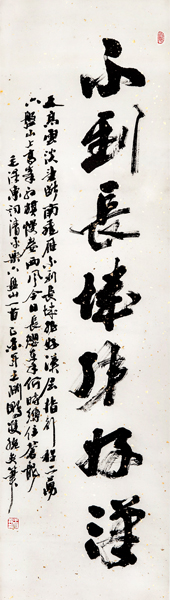 不到長城非好漢
天高雲淡望斷南飛雁不到長城非好漢屈指行程二萬
六盤山上高峰紅旗漫卷西風今日長纓在手何時縛住蒼龍
毛澤東詞清平樂六盤山一首